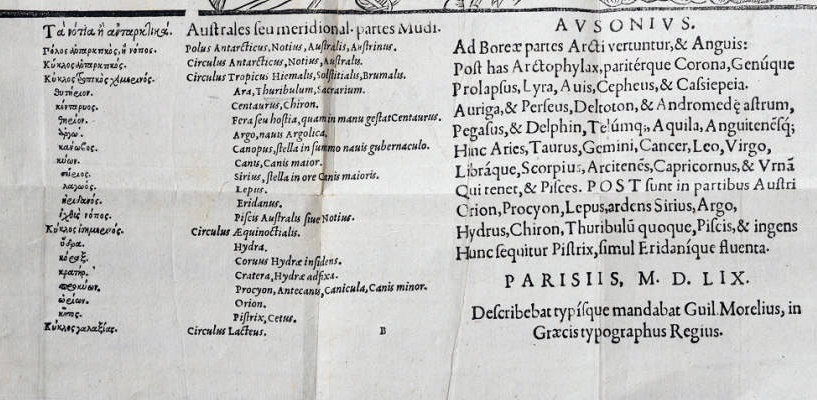 Τὰ νότια ἢ ἀνταρκτικά.
Πόλος ἀνταρκτικός, ἢ νότιος.
Κύκλος ἀνταρκτικός.
Κύκλος τροπικὸς χειμερινός.
θυτήριον.
κένταυρος.
θηρίον.
ἀργώ.
κάνωβος.
κύων.
σείριος.
λαγωός.
ἠριδανός.
ἰχθὺς νότιος.
Κύκλος ἰσημερινός.
ὕδρα.
κόραξ.
κρατήρ.
προκύων.
ὠρίων.
κῆτος.
Κύκλος γαλαξίας.
Australes seu meridional. partes Mūdi.
Polus Antarcticus, Notius, Australis, Austrinus.
Circulus Antarcticus, Notius, Australis.
Circulus Tropicus Hiemalis, Solstitialis, Brumalis.
Ara, Thuribulum, Sacrarium.
Centaurus, Chiron.
Fera seu hostia, quam in manu gestat Centaurus.
Argo, nauis Argolica.
Canopus, stella in summo nauis gubernaculo.
Canis, Canis maior.
Sirius, stella in ore Canis maioris.
Lepus.
Eridanus.
Piscis Australis siue Notius.
Circulus Æquinoctialis.
Hydra.
Coruus Hydræ insidens.
Cratera, Hydræ adfixa.
Procyon, Antecanis, Canicula, Canis minor.
Orion.
Pistrix, Cetus.
Circulus Lacteus.
B
AVSONIVS.
Ad Boreæ partes Arcti vertuntur, & Anguis:
Post has Arctophylax, paritérque Corona, Genúque
Prolapsus, Lyra, Auis, Cepheus, & Cassiepeia.
Auriga, & Perseus, Deltoton, & Andromedę astrum,
Pegasus, & Delphin, Telúmq;, Aquila, Anguitenēsq;
Hinc Aries, Taurus, Gemini, Cancer, Leo, Virgo,
Libráque, Scorpius, Arcitenēs, Capricornus, & Vrnā
Qui tenet, & Pisces. POST sunt in partibus Austri
Orion, Procyon, Lepus, ardens Sirius, Argo,
Hydrus, Chiron, Thuribulū quoque, Piscis, & ingens
Hunc sequitur Pistrix, simul Eridaníque fluenta.
PARISIIS, M. D. LIX.
Describebat typísque mandabat Guil. Morelius, in
Græcis typographus Regius.